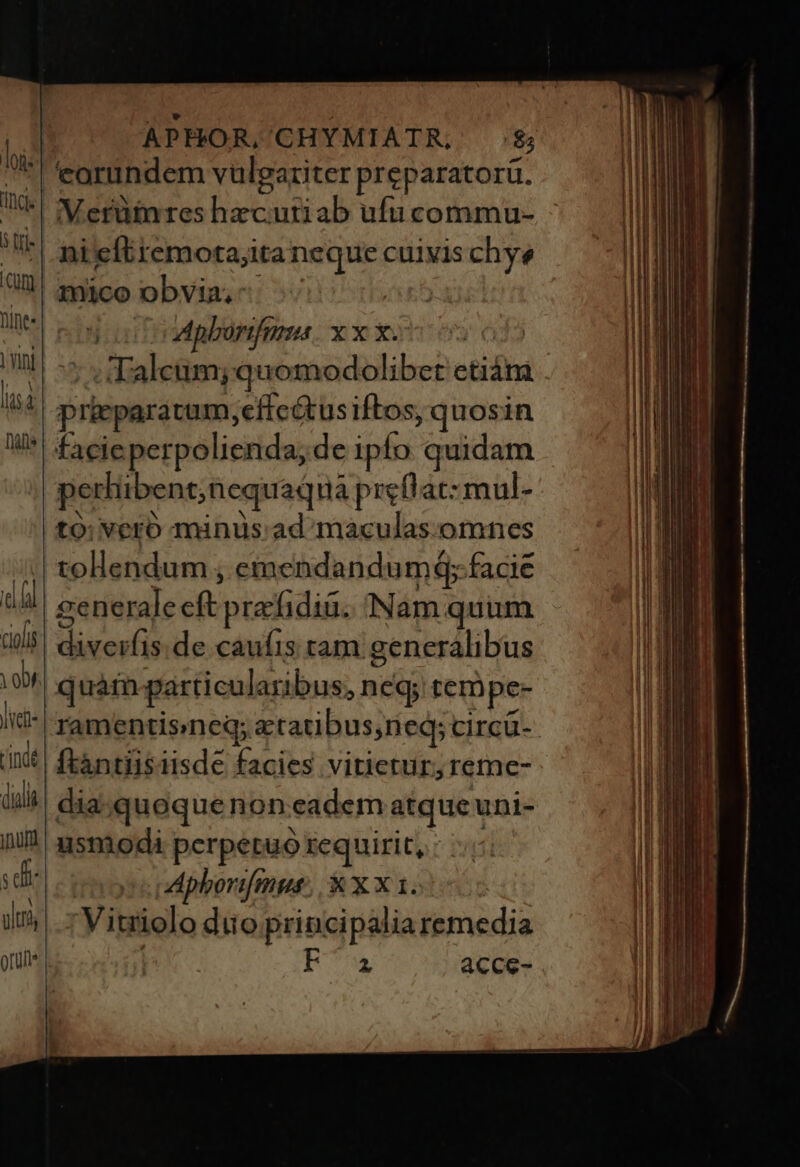 APHOR. CHYMIATR. 85
earundem vulgariter preparatorū.
Verùm res hæc uti ab usu commu-
ni est remota, ita neque cuivis chy-
mico obvia.
Aphorismus XXX.
Talcum, quomodolibet etiàm
præparatum, effectus istos, quos in
facie perpolienda, de ipso quidam
perhibent, nequaquà prestat: mul-
tò verò minùs ad maculas omnes
tollendum, emendandumq; faciē
generale est præsidiū. Nam quum
diversis de causis tam generalibus
quàm particularibus, neq; tempe-
ramentis, neq; ætatibus, neq; circū-
stàntiis iisdē facies vitietur, reme-
dia quoque non eadem atque uni-
usmodi perpetuò requirit,
Aphorismus XXXI.
Vitriolo duo principalia remedia
F 2 acce-